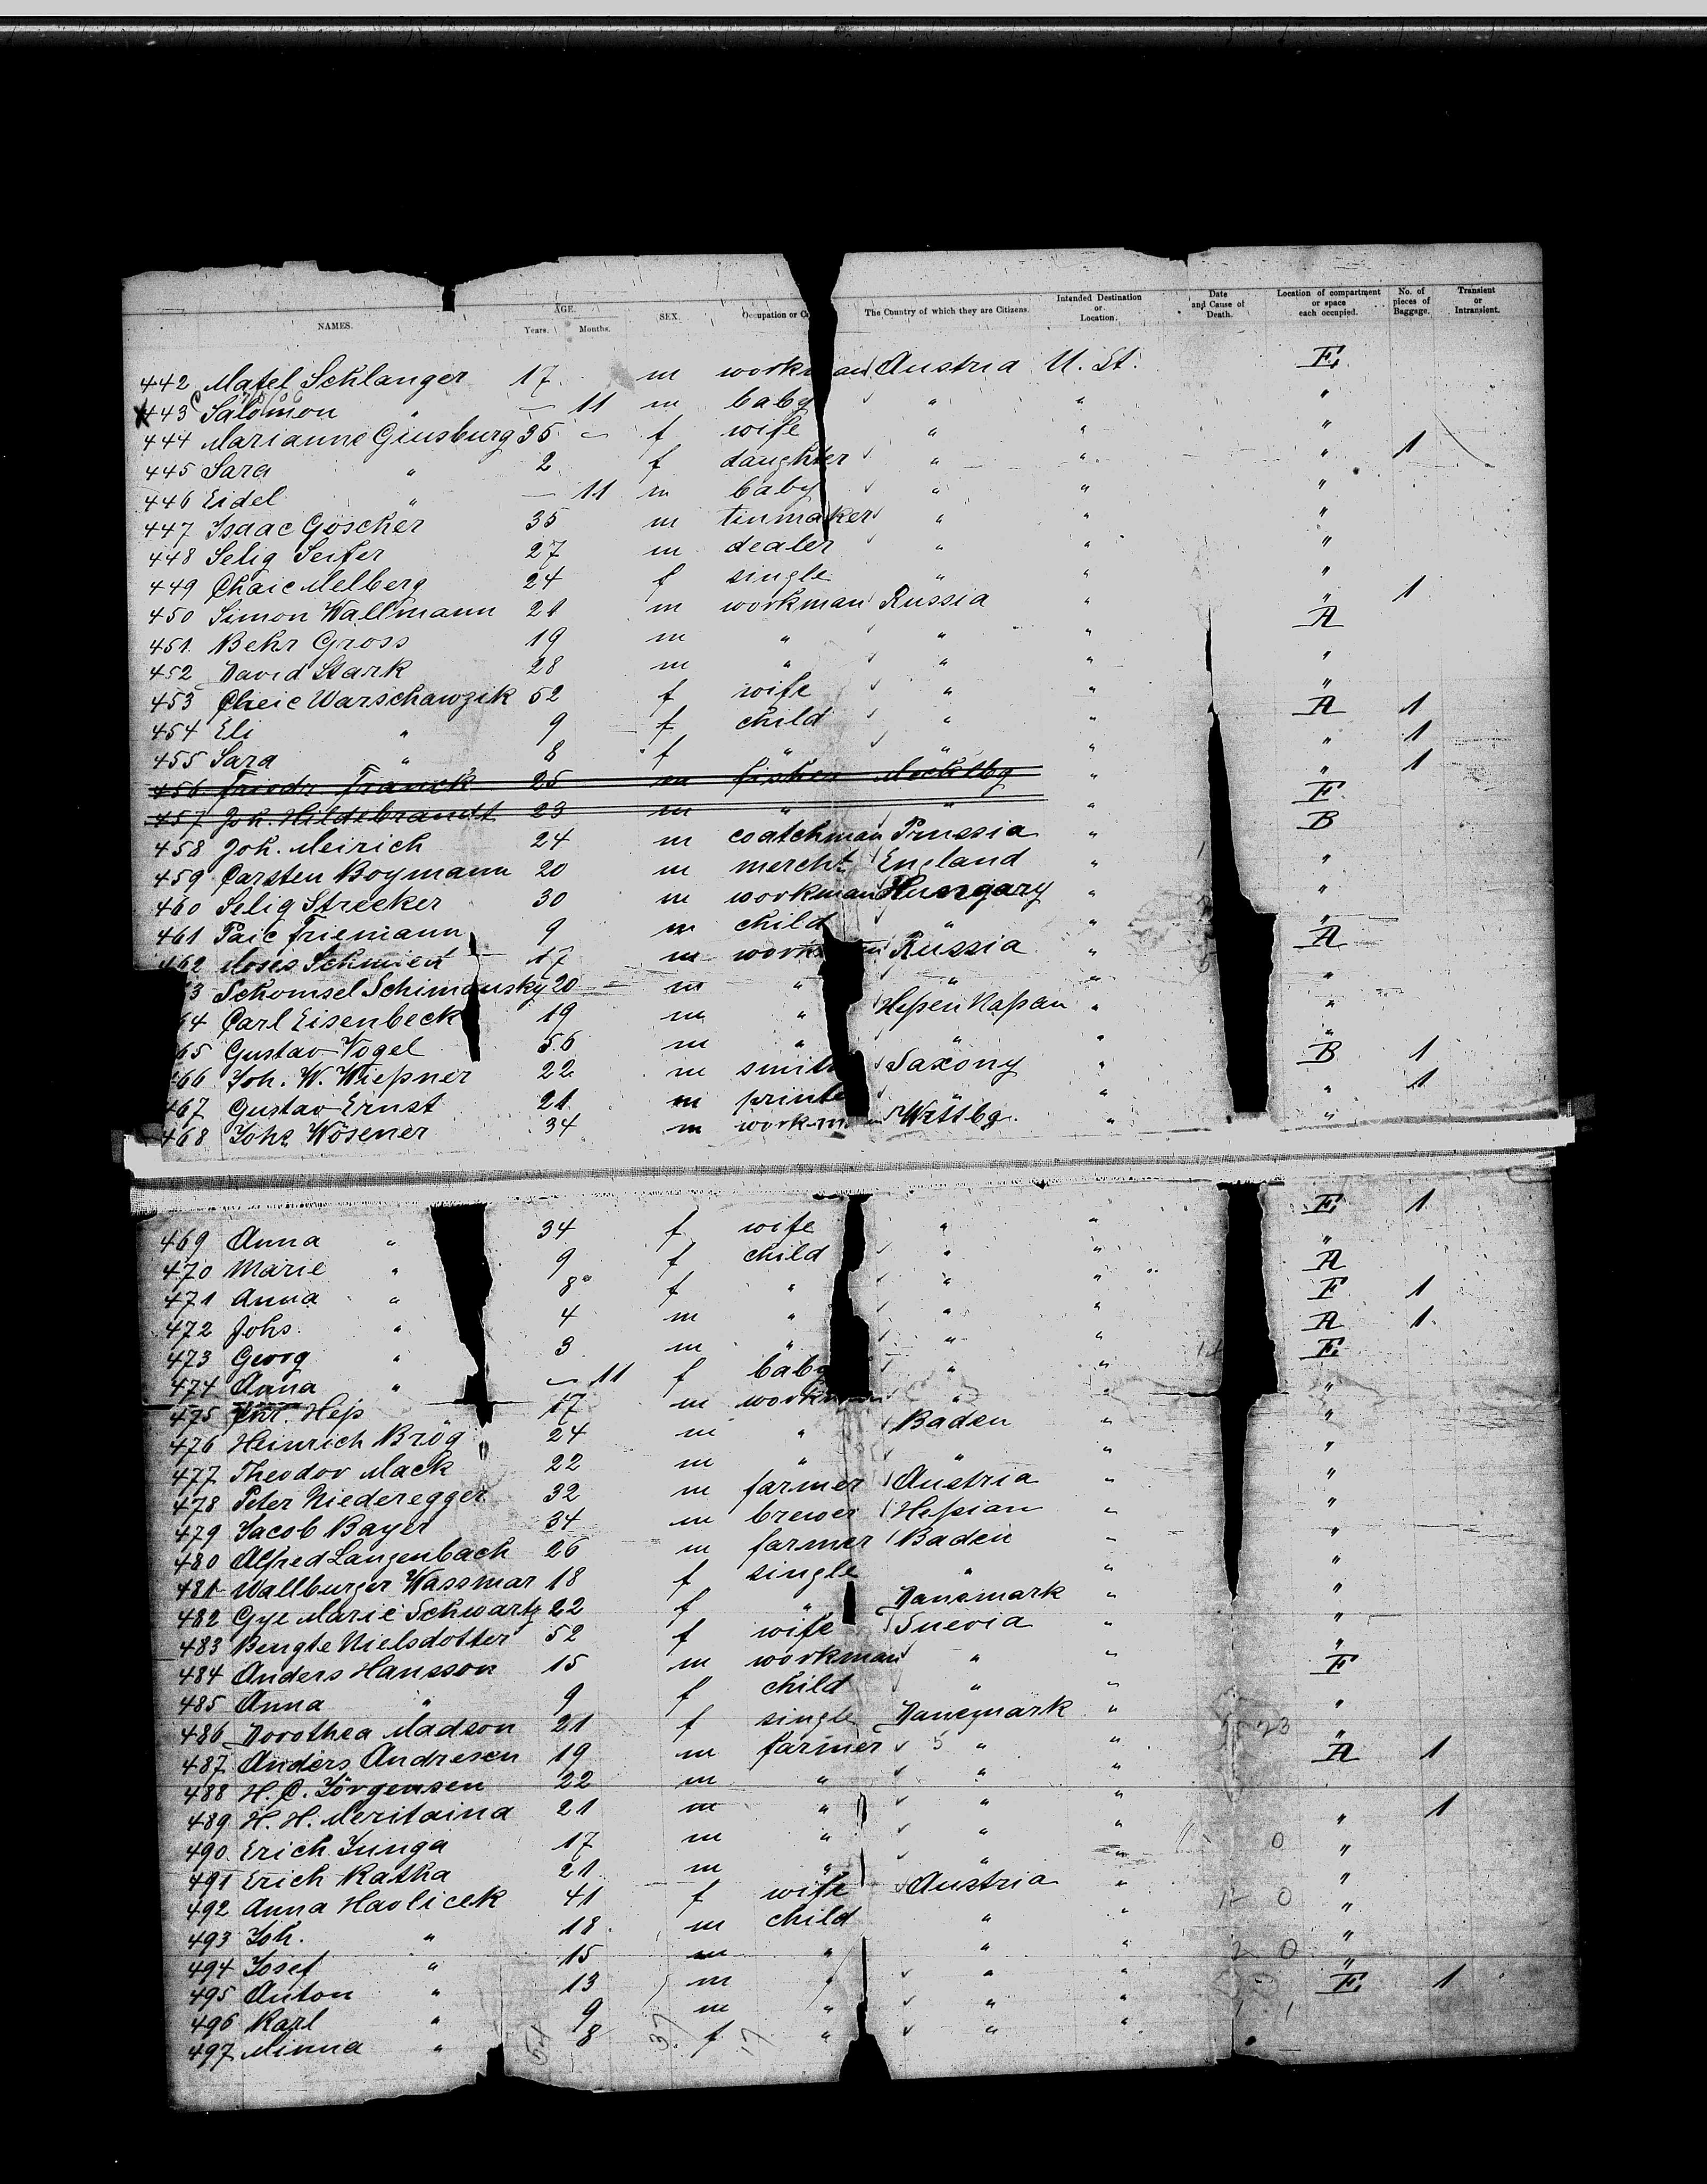 NAMES. AGE. Years. Months. SEX. Occupation or C The Country of which they are Citizens. Intended Destination or Location. Date and Cause of Death. Location of compartment or space each occupied. No. of pieces of Baggage. Transient or Intransient.
442 Matel Schlanger 17 m workman Austria U. St. E.
443 Salomon " — 11 m baby " " "
444 Marianne Ginsburg 35 — f wife " " "
445 Sara " 2 f daughter " " " 1
446 Eidel " — 11 m baby " " "
447 Isaac Goscher 35 m tinmaker " " "
448 Selig Seifer 27 m dealer " " "
449 Chaie Melberg 24 f single " " "
450 Simon Wallmann 21 m workman Russia " " 1
451 Behr Gross 19 m " " " A
452 David Stark 28 m " " " "
453 Cheie Warschawzik 52 f wife " " "
454 Eli " 9 f child " " A 1
455 Sara " 8 f " " " " 1
456 Friedr Franck 25 m fisher Mecklbg " " 1
457 Joh. Hildebrandt 23 m " " " E.
458 Joh. Meirich 24 m coatchman Prussia " B
459 Carsten Boymann 20 m mercht England " "
460 Selig Strecker 30 m workman Hungary " "
461 Paie Friemann 9 m child " " "
462 Moses Schmied 17 m workman Russia " A
3 Schomsel Schimansky 20 — m " " " "
64 Carl Eisenbeck 19 m " Heßen Naßau " "
65 Gustav Vogel 56 m " " " "
66 Joh. W. Wießner 22 m smith Saxony " B 1
467 Gustav Ernst 21 m printe " " 1
468 Johs Wösener 34 m workm Wrttbg. " "
469 Anna " 34 f wife " " E. 1
470 Marie " 9 f child " " "
471 Anna " 8 f " " " A
472 Johs. " 4 m " " " F 1
473 Georg " 3 m " " " A 1
474 Anna " — 11 f baby " " E.
475 Chr. Heß 17 m workman " " "
476 Heinrich Brög 24 m " Baden " "
477 Theodor Mack 22 m " " " "
478 Peter Niederegger 32 m farmer Austria " "
479 Jacob Bayer 34 m brewer Heßian " "
480 Alfred Langenbach 26 m farmer Baden " "
481 Wallburger Wassmar 18 f single " " "
482 Gye Marie Schwartz 22 f " Danemark " "
483 Bengte Nielsdotter 52 f wife Suevia " "
484 Anders Hansson 15 m workman " " "
485 Anna " 9 f child " " F
486 Dorothea Madson 21 f single Danemark " "
487 Anders Andresen 19 m farmer " " "
488 H. C. Jörgensen 22 m " " " A 1
489 H. H. Meritaina 21 m " " " 1
490 Erich Junga 17 m " " " "
491 Erich Katha 21 m " " " "
492 Anna Havlicek 41 f wife Austria " "
493 Joh. " 18 m child " " "
494 Josef " 15 m " " " "
495 Anton " 13 m " " " "
496 Karl " 9 m " " " E. 1
497 Minna " 8 f " " "